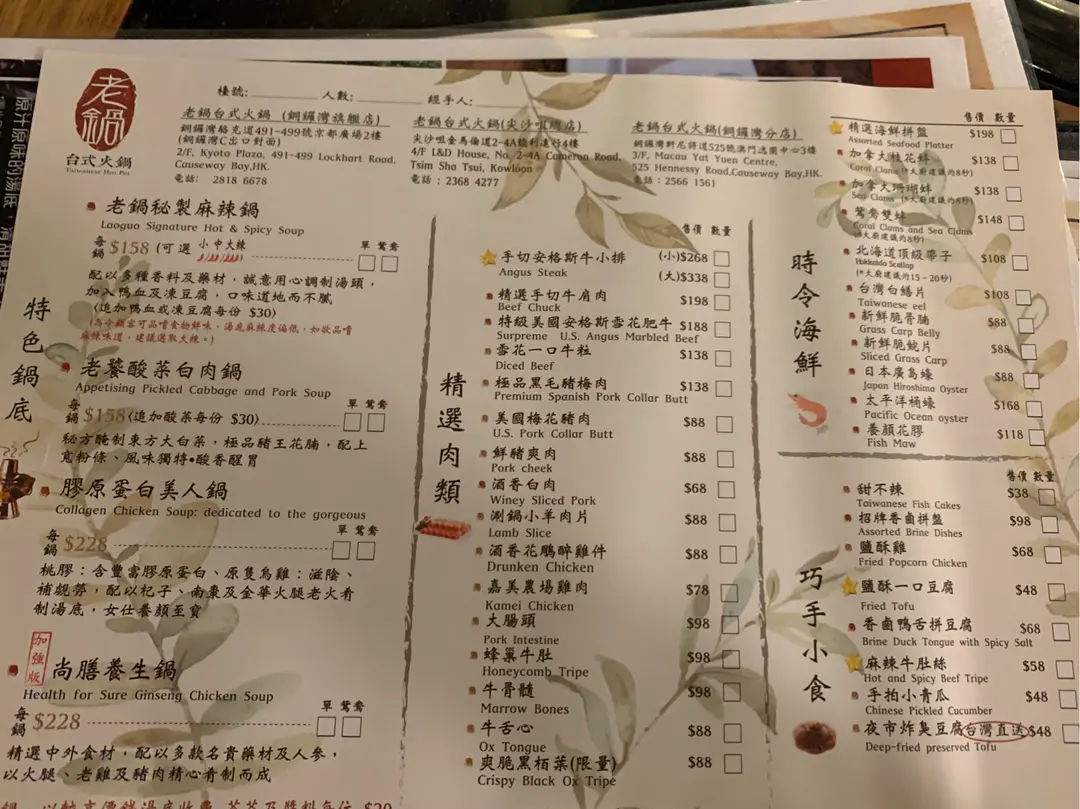 老鍋
台式火鍋
Taiwanese Hot Pot
檯號: 人數: 經手人:
老鍋台式火鍋 (銅鑼灣旗艦店)
銅鑼灣駱克道491-499號京都廣場2樓
(銅鑼灣C出口對面)
2/F, Kyoto Plaza, 491-499 Lockhart Road,
Causeway Bay,HK.
電話: 2818 6678
老鍋台式火鍋(尖沙咀總店)
尖沙咀金馬倫道2-4A號利達行4樓
4/F L&D House, No. 2-4A Cameron Road,
Tsim Sha Tsui, Kowloon
電話 : 2368 4277
老鍋台式火鍋(銅鑼灣分店)
銅鑼灣軒尼詩道525號澳門逸園中心3樓
3/F, Macau Yat Yuen Centre,
525 Hennessy Road,Causeway Bay,HK.
電話 : 2566 1561
特色鍋底
老鍋秘製麻辣鍋
Laoguo Signature Hot & Spicy Soup
單 鴛鴦
每鍋 $158 (可選 小 中 大辣
配以多種香料及藥材，誠意用心調制湯頭，
加入鴨血及凍豆腐，口味道地而不膩
(追加鴨血或凍豆腐每份 $30)
(為令顧客可品嚐食物鮮味，湯底麻辣度偏低，如欲品嚐
麻辣味道，建議選取大辣。)
老饕酸菜白肉鍋
Appetising Pickled Cabbage and Pork Soup
單 鴛鴦
每鍋 $158 (追加酸菜每份 $30)
秘方醃制東方大白菜，極品豬王花腩，配上
寬粉條、風味獨特•酸香醒胃
膠原蛋白美人鍋
Collagen Chicken Soup: dedicated to the gorgeous
單 鴛鴦
每鍋 $228
桃膠：含豐富膠原蛋白、原隻烏雞：滋陰、
補觀勞，配以杞子、南棗及金華火腿老火肴
制湯底，女仕養顏至寶
加強版
尚膳養生鍋
Health for Sure Ginseng Chicken Soup
單 鴛鴦
每鍋 $228
精選中外食材，配以多款名貴藥材及人參，
以火腿、老雞及豬肉精心肴制而成
精選肉類
售價 數量
手切安格斯牛小排 (小)$268
Angus Steak (大)$338
精選手切牛肩肉 $198
Beef Chuck
特級美國安格斯雪花肥牛 $188
Surpreme U.S. Angus Marbled Beef
雪花一口牛粒 $138
Diced Beef
極品黑毛豬梅肉 $138
Premium Spanish Pork Collar Butt
美國梅花豬肉 $88
U.S. Pork Collar Butt
鮮豬爽肉 $88
Pork cheek
酒香白肉 $68
Winey Sliced Pork
涮鍋小羊肉片 $88
Lamb Slice
酒香花鵰醉雞件 $88
Drunken Chicken
嘉美農場雞肉 $78
Kamei Chicken
大腸頭 $98
Pork Intestine
蜂巢牛肚 $98
Honeycomb Tripe
牛骨髓 $98
Marrow Bones
牛舌心 $88
Ox Tongue
爽脆黑栢葉(限量) $88
Crispy Black Ox Tripe
時令海鮮
售價 數量
精選海鮮拼盤 $198
Assorted Seafood Platter
加拿大桂花蚌 $138
Coral Clams (*大廚建議約8秒)
加拿大珊瑚蚌 $138
Sea Clams (*大廚建議約8秒)
鴛鴦雙蚌 $148
Coral Clams and Sea Clams
(*大廚建議約8秒)
北海道頂級帶子 $108
Hokkaido Scallop
(*大廚建議約15-20秒)
台灣白鱔片 $108
Taiwanese eel
新鮮脆骨腩 $88
Grass Carp Belly
新鮮脆鯇片 $88
Sliced Grass Carp
日本廣島蠔 $88
Japan Hiroshima Oyster
太平洋桶蠔 $168
Pacific Ocean oyster
養顏花膠 $118
Fish Maw
巧手小食
售價 數量
甜不辣 $38
Taiwanese Fish Cakes
招牌香鹵拼盤 $98
Assorted Brine Dishes
鹽酥雞 $68
Fried Popcorn Chicken
鹽酥一口豆腐 $48
Fried Tofu
香鹵鴨舌拼豆腐 $68
Brine Duck Tongue with Spicy Salt
麻辣牛肚絲 $58
Hot and Spicy Beef Tripe
手拍小青瓜 $48
Chinese Pickled Cucumber
夜市炸臭豆腐 台灣直送 $48
Deep-fried preserved Tofu